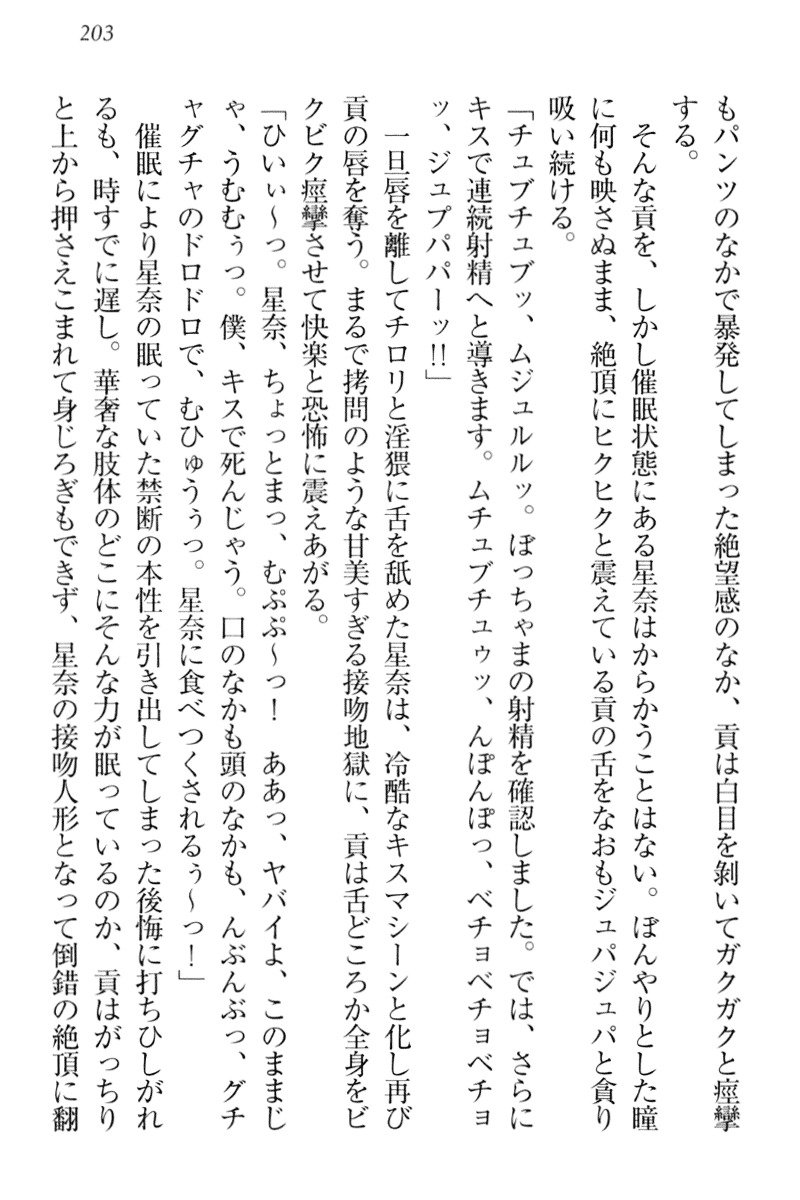 203
もパンツのなかで暴発してしまった絶望感のなか、貢は白目を剝いてガクガクと痙攣
する。
そんな貢を、しかし催眠状態にある星奈はからかうことはない。ぼんやりとした瞳
に何も映さぬまま、絶頂にヒクヒクと震えている貢の舌をなおもジュパジュパと貪り
吸い続ける。
「チュブチュブッ、ムジュルルッ。ぼっちゃまの射精を確認しました。では、さらに
キスで連続射精へと導きます。ムチュブチュゥッ、んぽんぽっ、ベチョベチョベチョ
ッ、ジュプパパーッ!!」
一旦唇を離してチロリと淫猥に舌を舐めた星奈は、冷酷なキスマシーンと化し再び
貢の唇を奪う。まるで拷問のような甘美すぎる接吻地獄に、貢は舌どころか全身をビ
クビク痙攣させて快楽と恐怖に震えあがる。
「ひいぃ〜っ。星奈、ちょっとまっ、むぷぷ〜っ！　ああっ、ヤバイよ、このままじ
ゃ、うむむぅっ。僕、キスで死んじゃう。口のなかも頭のなかも、んぶんぶっ、グチ
ャグチャのドロドロで、むひゅうぅっ。星奈に食べつくされるぅ〜っ！」
催眠により星奈の眠っていた禁断の本性を引き出してしまった後悔に打ちひしがれ
るも、時すでに遅し。華奢な肢体のどこにそんな力が眠っているのか、貢はがっちり
と上から押さえこまれて身じろぎもできず、星奈の接吻人形となって倒錯の絶頂に翻